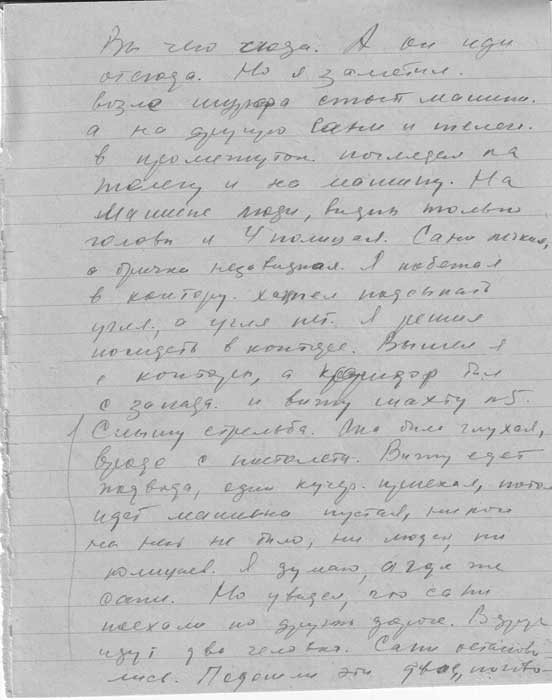 Вы чего сюда. А он иди
отсюда. Но я заметил.
возле шурфа стоит машина.
а на другую сани и телег.
в промежуток. поглядел на
телегу и на машину. На
машине люди, видны только
головы и 4 полицая. Сани
а бричка незавидная. Я побежал
в контору. Хотел подсыпать
угля, а угля нет. Я решил
посидеть в конторе. Вышел я
с конторы, а коридор был
с запада. и вижу шахту №5.
Слышу стрельба. Она была глухая,
вроде с пистолета. Вижу едет
подвода, один кучер. приехал, пото
идет машина пустая, никого
на ней не было, ни людей, ни
полицаев. Я думаю, а где же
сани. Но увидел, что сани
поехали по другой дороге. Вдруг
идут два человека. Сани останово
лись. Подошли эти двое,